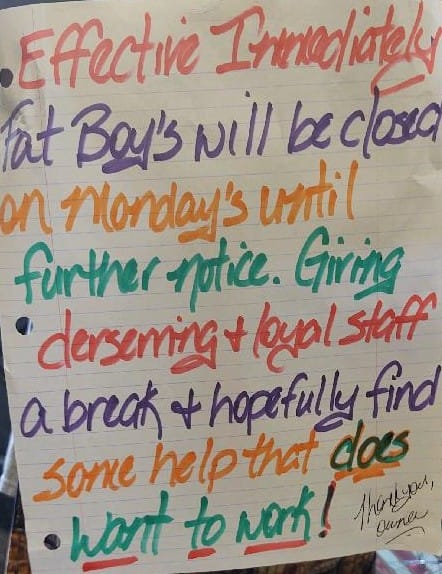 Effective Immediately
Fat Boy's will be closed
on Monday's until
further notice. Giving
derserving + loyal staff
a break + hopefully find
some help that does
want to work!
Thank you,
owner